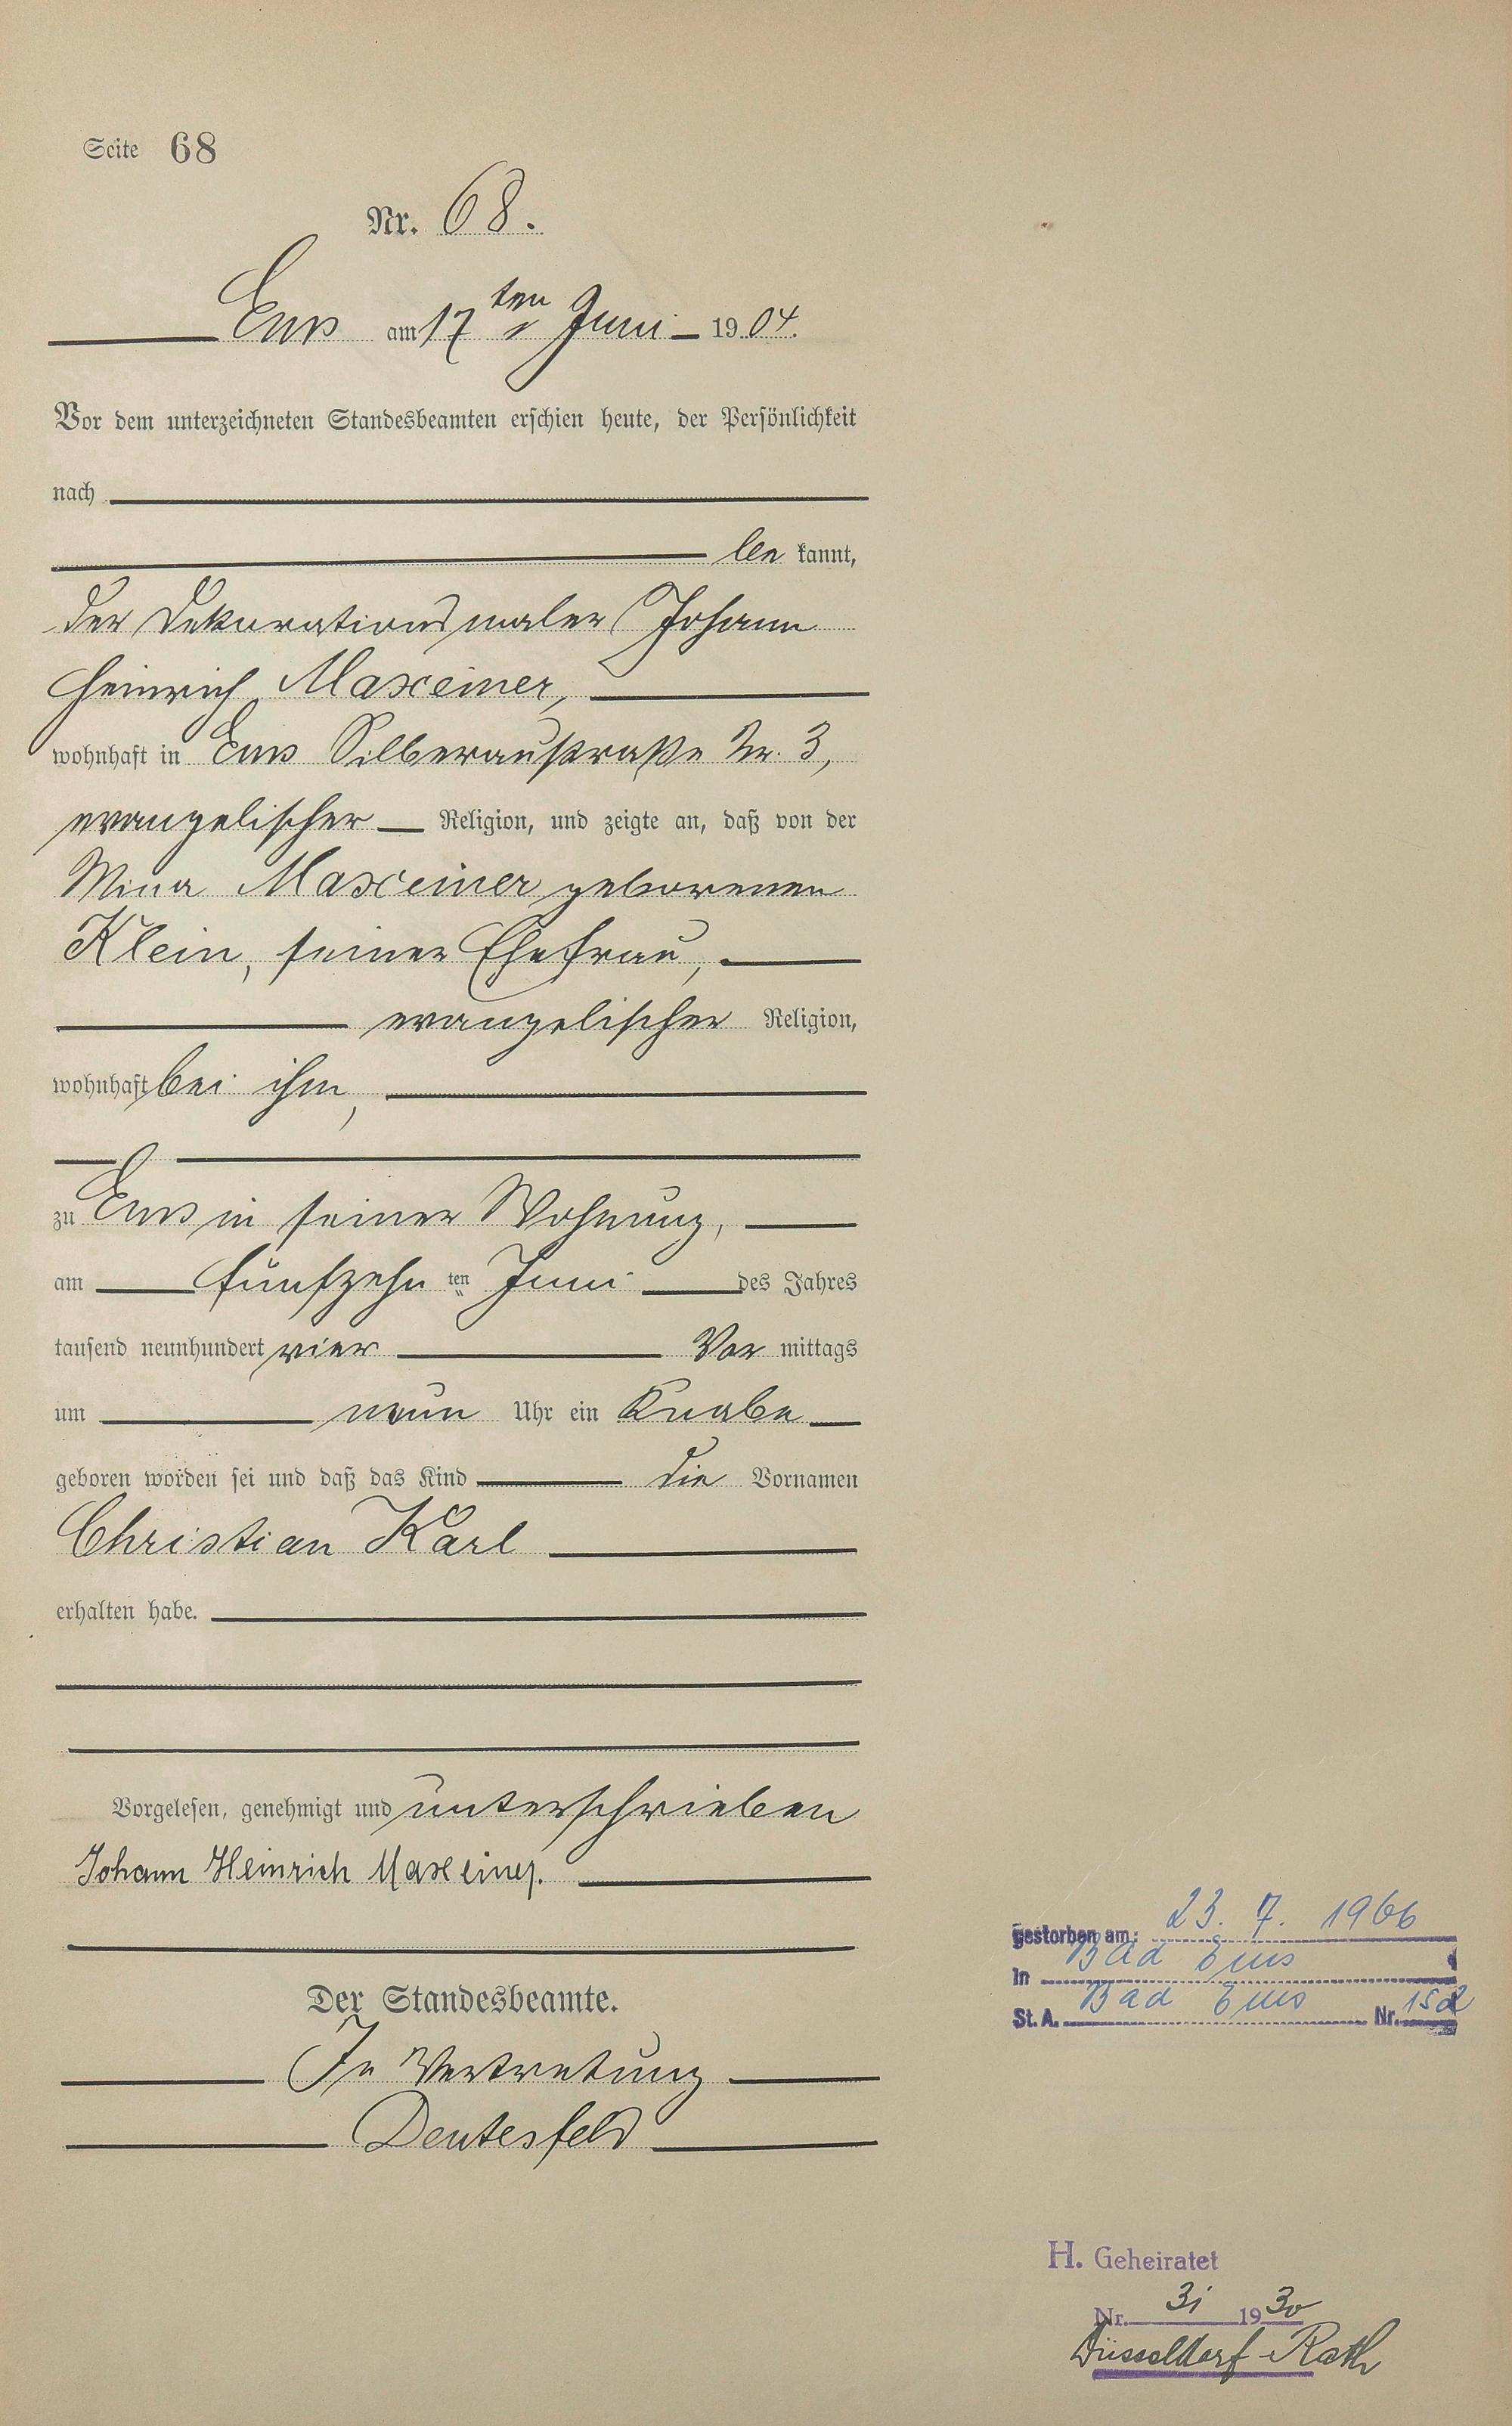 Seite 68
Nr. 68.
Ems am 17ten Juni 1904.
Vor dem unterzeichneten Standesbeamten erschien heute, der Persönlichkeit
nach
be kannt,
der Dekorationsmaler Johann
Heinrich Maxeiner,
wohnhaft in Ems Silberaustraße Nr. 3,
evangelischer Religion, und zeigte an, daß von der
Mina Maxeiner geborenen
Klein, seiner Ehefrau,
evangelischer Religion,
wohnhaft bei ihm,
zu Ems in seiner Wohnung,
am fünfzehn ten Juni des Jahres
tausend neunhundert vier Vor mittags
um neun Uhr ein Knabe
geboren worden sei und daß das Kind die Vornamen
Christian Karl
erhalten habe.
Vorgelesen, genehmigt und unterschrieben
Johann Heinrich Maxeiner.
Der Standesbeamte.
In Vertretung
Deutesfeld
gestorben am: 23. 7. 1966
in Bad Ems
St. A. Bad Ems Nr. 152
H. Geheiratet
Nr. 31 1930
Düsseldorf-Rath